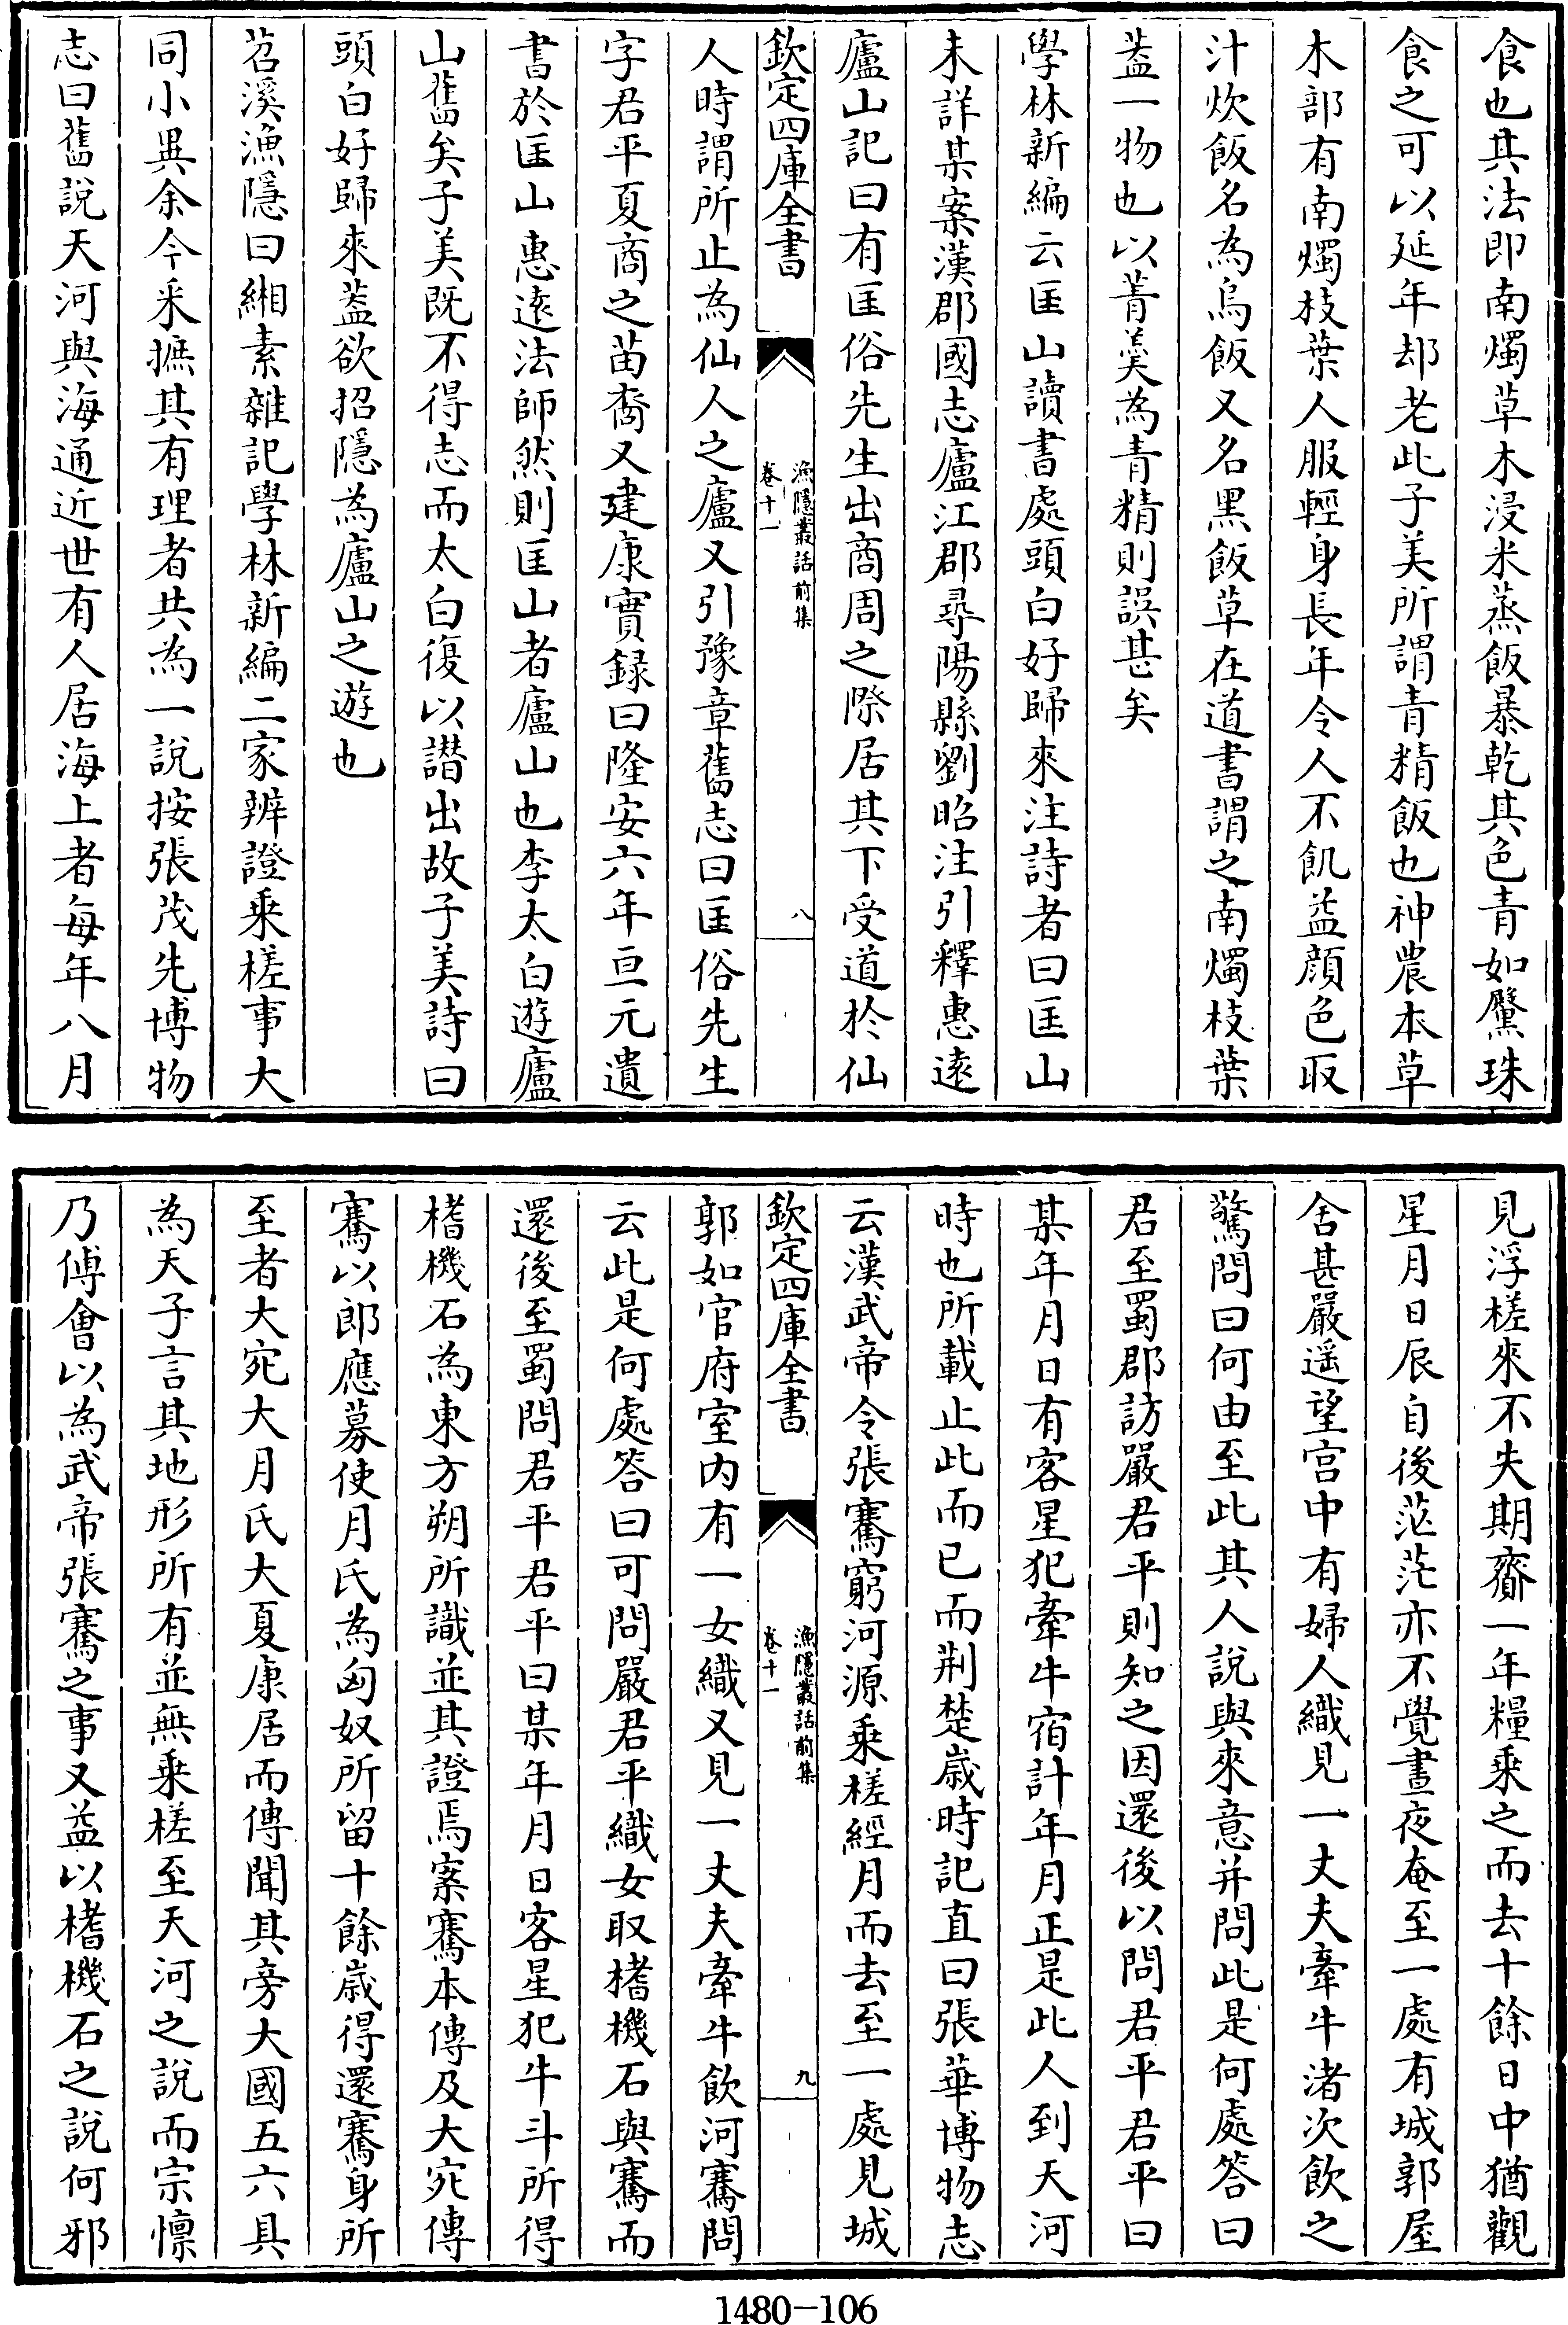 食也其法即南燭草木浸米蒸飯暴乾其色青如黳珠
食之可以延年却老此子美所謂青精飯也神農本草
木部有南燭枝葉人服輕身長年令人不飢益顔色取
汁炊飯名為烏飯又名黑飯草在道書謂之南燭枝葉
葢一物也以菁羮為青精則誤甚矣
學林新編云匡山讀書處頭白好歸來注詩者曰匡山
未詳某案漢郡國志廬江郡尋陽縣劉昭注引釋惠逺
廬山記曰有匡俗先生出商周之際居其下受道於仙
欽定四庫全書
漁隱叢話前集
卷十一
八
人時謂所止為仙人之廬又引豫章舊志曰匡俗先生
字君平夏商之苗裔又建康實録曰隆安六年亘元遺
書於匡山惠逺法師然則匡山者廬山也李太白遊廬
山舊矣子美既不得志而太白復以譛出故子美詩曰
頭白好歸來葢欲招隱為廬山之遊也
苕溪漁隱曰緗素雜記學林新編二家辨證乘槎事大
同小異余今采摭其有理者共為一說按張茂先博物
志曰舊説天河與海通近世有人居海上者每年八月
見浮槎來不失期齎一年糧乘之而去十餘日中猶觀
星月日辰自後茫茫亦不覺晝夜奄至一處有城郭屋
舍甚嚴遥望宫中有婦人織見一丈夫牽牛渚次飲之
驚問曰何由至此其人說與來意并問此是何處答曰
君至蜀郡訪嚴君平則知之因還後以問君平君平曰
某年月日有客星犯牽牛宿計年月正是此人到天河
時也所載止此而已而荆楚歲時記直曰張華博物志
云漢武帝令張騫窮河源乘槎經月而去至一處見城
欽定四庫全書
漁隱叢話前集
卷十一
九
郭如官府室内有一女織又見一丈夫牽牛飲河騫問
云此是何處答曰可問嚴君平織女取榰機石與騫而
還後至蜀問君平君平曰某年月日客星犯牛斗所得
榰機石為東方朔所識並其證焉案騫本傳及大宛傳
騫以郎應募使月氏為匈奴所留十餘歲得還騫身所
至者大宛大月氏大夏康居而傳聞其旁大國五六具
為天子言其地形所有並無乘槎至天河之說而宗懔
乃傅會以為武帝張騫之事又益以榰機石之說何邪
1480-106